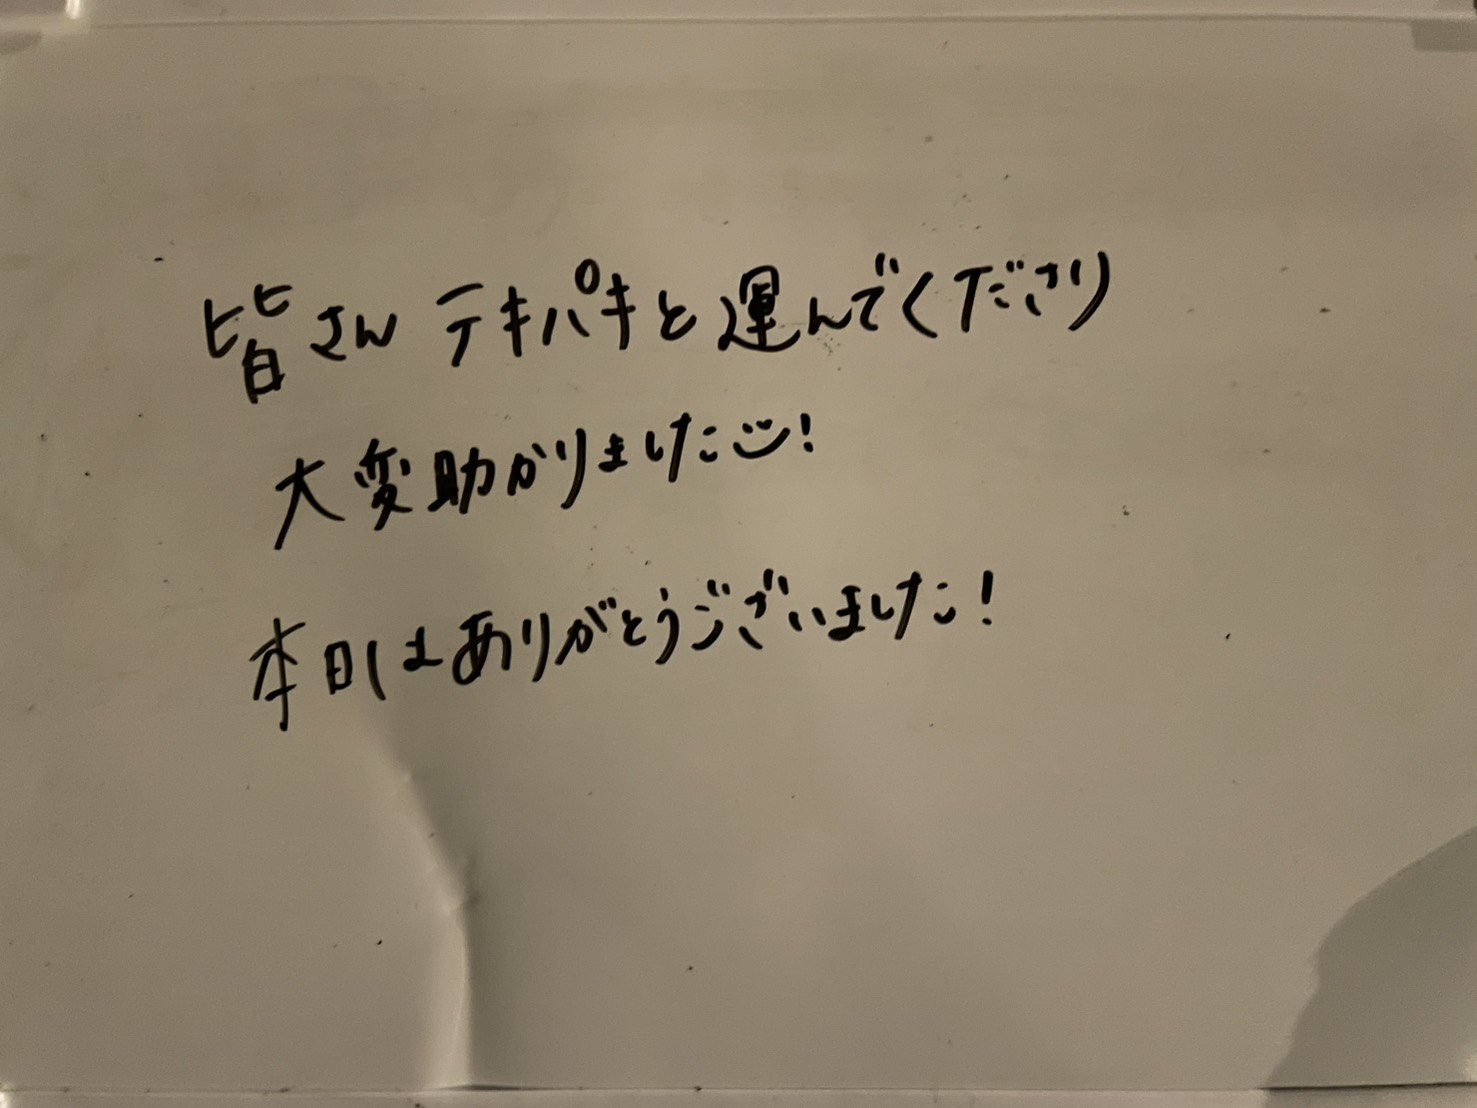 皆さん テキパキと運んでくださり
大変助かりました!
本日はありがとうございました!